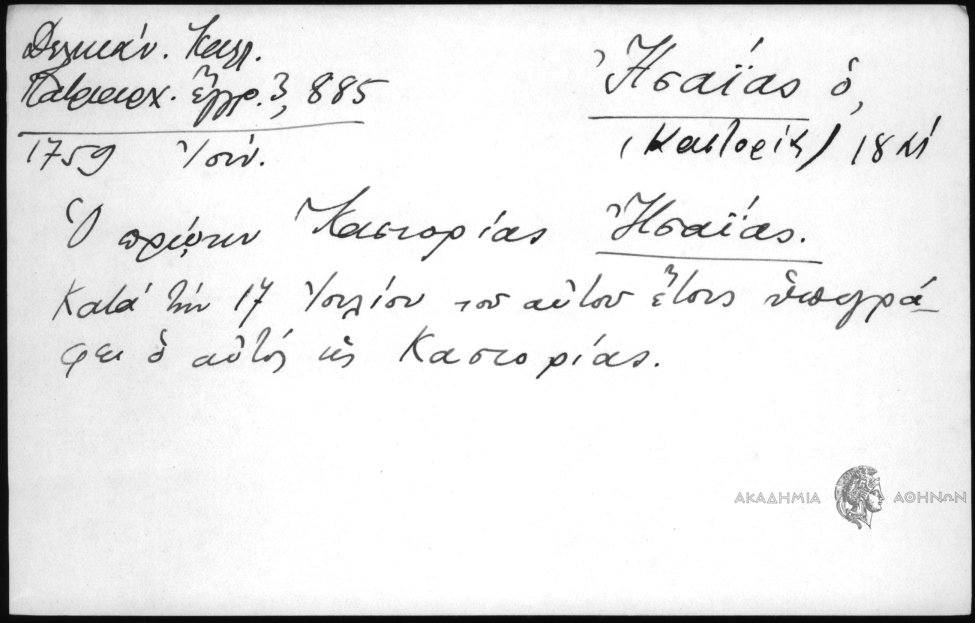 Δελικάν. Καλλ.
Πατριαρχ. ἔγγρ. 3, 885
1759 Ἰουν.
Ἡσαΐας ὁ,
(Καστορίας) 18
Ὁ πρώην Καστορίας Ἡσαΐας.
Κατά τήν 17 Ἰουλίου του αὐτου ἔτους ὑπογρά-
φει ὁ αὐτός ὡς Καστορίας.
ΑΚΑΔΗΜΙΑ ΑΘΗΝΩΝ